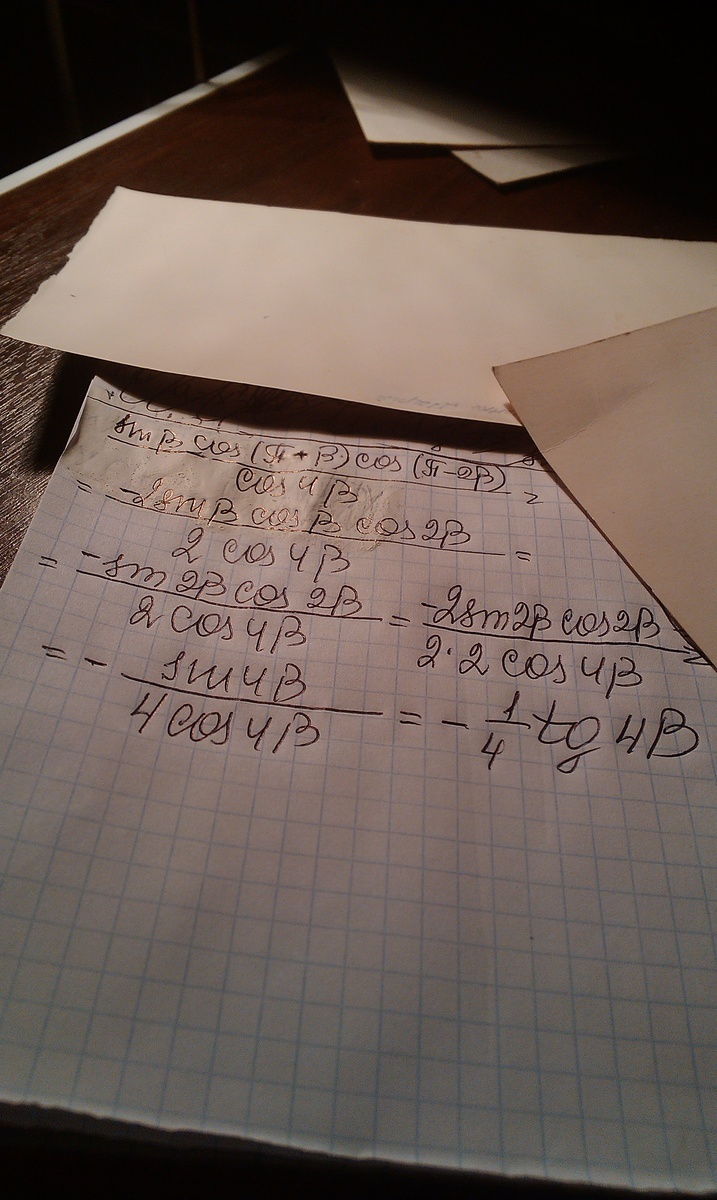 sin β cos (π + β) cos (π - 2β)
cos 4β =
= -2 sin β cos β cos 2β
2 cos 4β =
= -sin 2β cos 2β = -2 sin 2β cos 2β =
2 cos 4β 2·2 cos 4β
= - sin 4β
4 cos 4β = - 1/4 tg 4β